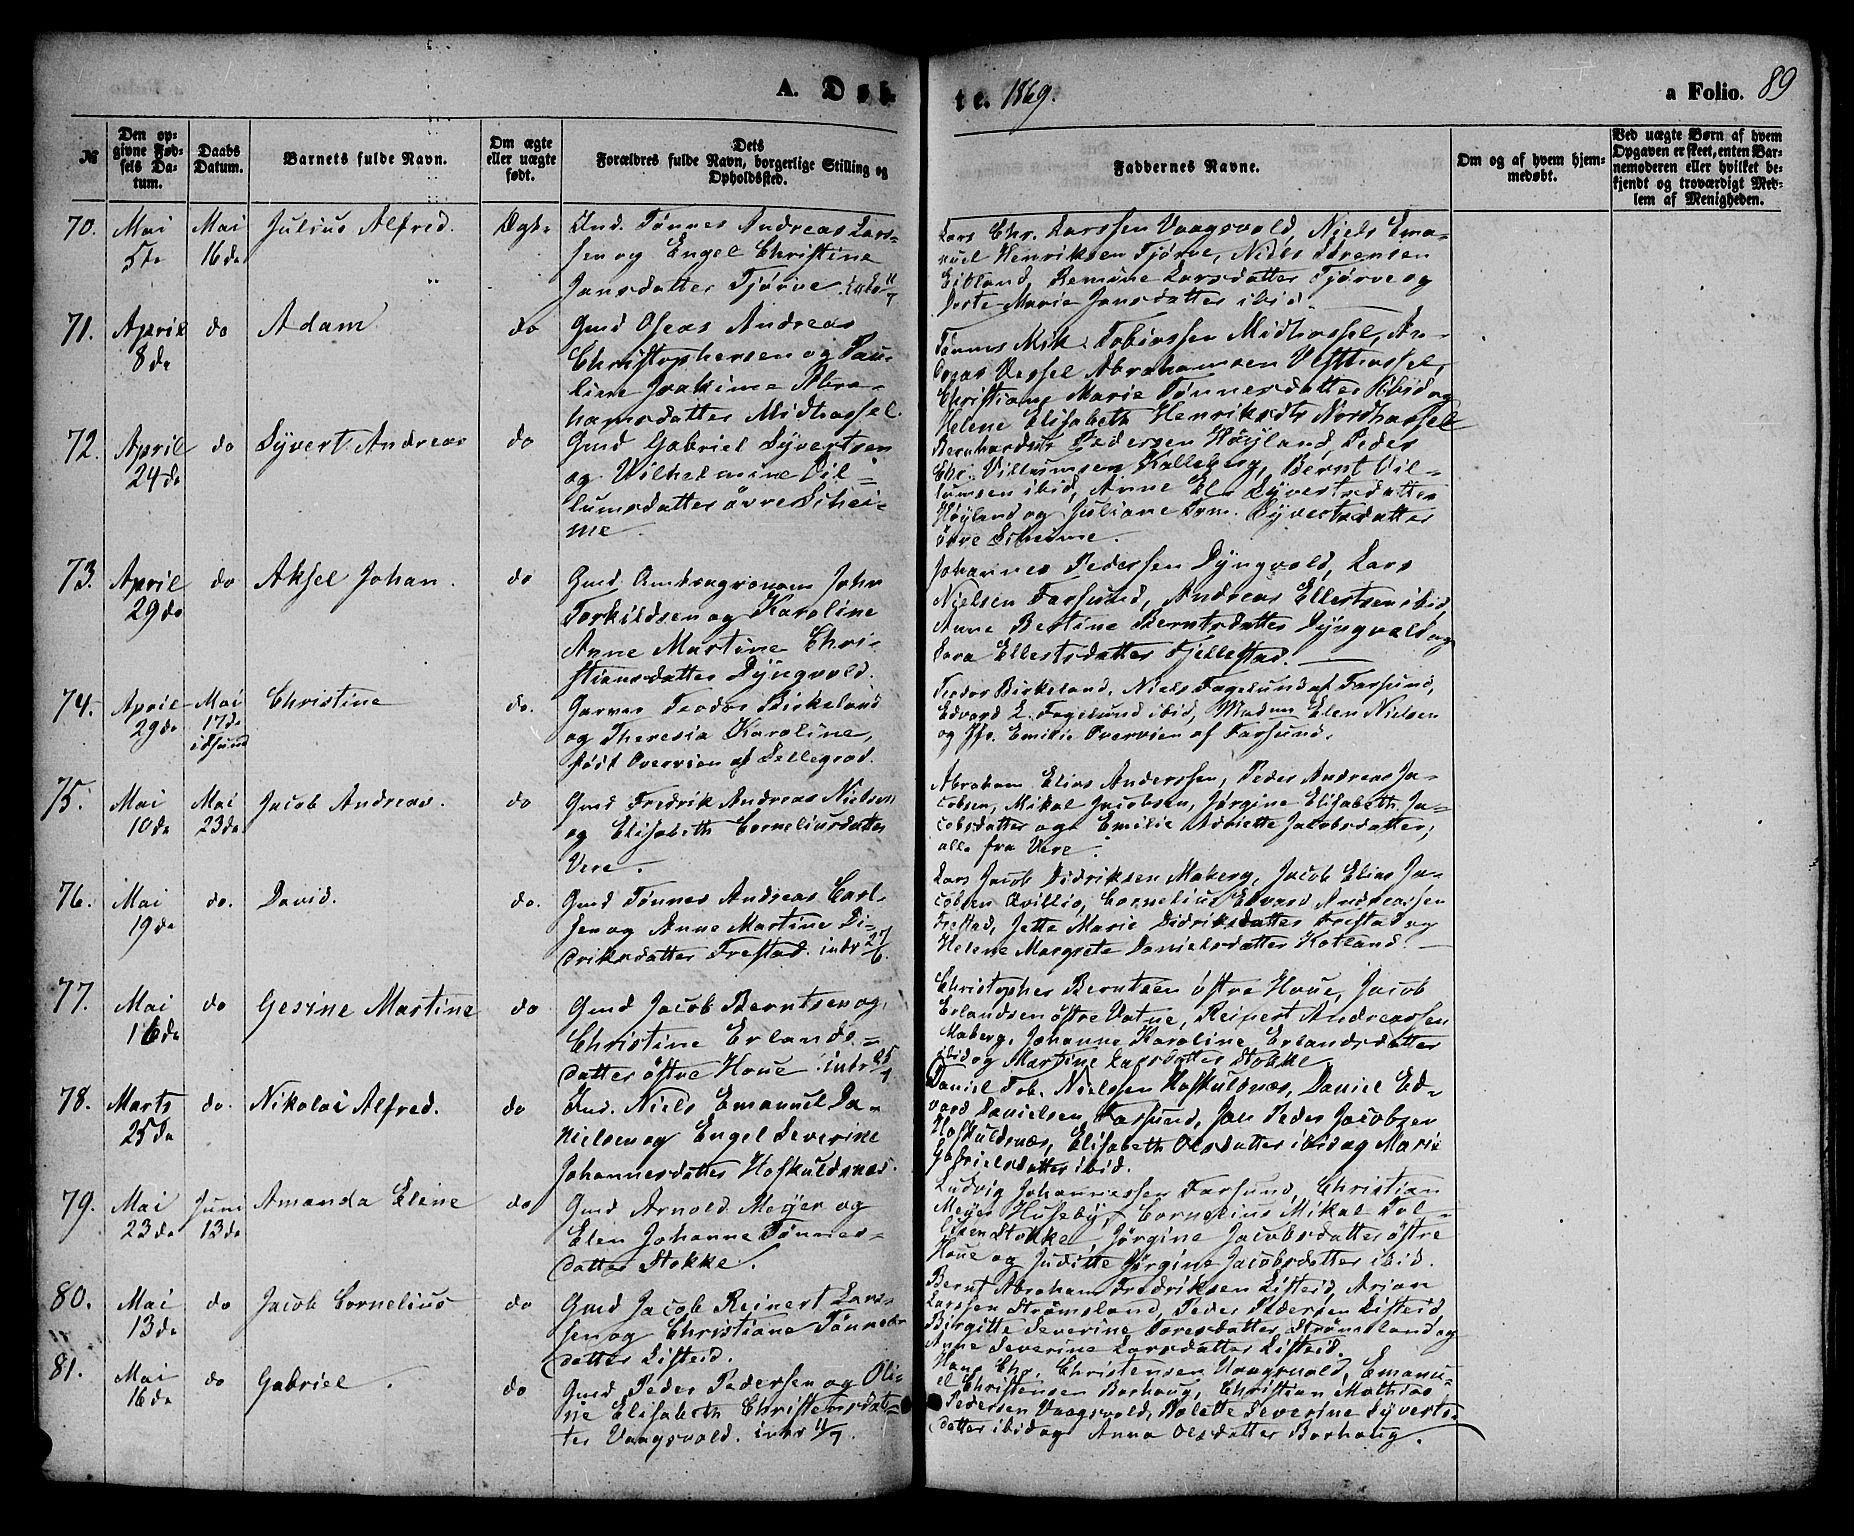 A. Døb-
te. 1869.
a Folio. 89
№
Den op-
givne Fød-
sels Da-
tum.
Daabs
Datum.
Barnets fulde Navn.
Om ægte
eller uægte
født.
Dets
Forældres fulde Navn, borgerlige Stilling og
Opholdssted.
Faddernes Navne.
Om og af hvem hjem-
medøbt.
Ved uægte Børn af hvem
Opgaven er skeet, enten Bar-
nemoderen eller hvilket be-
kjendt og troværdigt Med-
lem af Menigheden.
70. Mai 5de Mai 16de Julius Alfred. Ægte
Ind. Tønnes Andreas Lars-
sen og Engel Christine
Jansdatter Tjørve
Lars Chr. Larssen Vaagsvold, Niels Ema-
nuel Henriksen Tjørve, Niels Sørensen
Eitland, Larsdatter Tjørve og
Dorte Marie Jansdatter ibid.
71. April 8de do Adam do
Gmd Oseas Andreas
Christophersen og Pau-
line Joakime Abra-
hamsdatter Midthassel.
Tønnes Mik. Tobiassen Midthassel, An-
dreas Vessel Abrahamsen Vesthassel,
Christiane Marie Tønnesdatter ibid og
Helene Elisabeth Henriksdtr Nordhassel
72. April 24de do Syvert Andreas do
Gmd Gabriel Syvertsen
og Wilhelmine Vil-
lumsdatter øvre Skei-
me.
Bernhardus Pedersen Høyland, Peder
Chr. Villumsen Kalleberg, Bernt Vil-
lumsen ibid, Anne El. Syvertsdatter
Høyland og Juliane Syvertsdatter
øvre Skeime.
73. April 29de do Aksel Johan. do
Gmd Amtsagronom John
Torkildsen og Karoline
Anne Martine Chri-
stiansdatter Dyngvold.
Johannes Pedersen Dyngvold, Lars
Nielsen Farsund, Andreas Ellertsen ibid,
Anne Bertine Berntsdatter Dyngvold og
Sara Ellertsdatter Fjellestad.
74. April 29de Mai 17de i Fsund Christine do.
Garver Teodor Birkeland
og Theresia Karoline,
født Overvien af Sellegrod.
Teodor Birkeland, Niels Fagelund af Farsund,
Edvard L. Fagelund ibid, Madam Elen Nielsen
og Jfr. Emilie Overvien af Farsund.
75. Mai 10de Mai 23de Jacob Andreas. do
Gmd Fredrik Andreas Nielsen
og Elisabeth Corneliusdatter
Vere.
Abraham Elias Anderssen, Peder Andreas Ja-
cobsen, Mikal Jacobsen, Jørgine Elisabeth Ja-
cobsdatter og Emilie Adriette Jacobsdatter,
alle fra Vere.
76. Mai 19de do. David. do.
Gmd Tønnes Andreas Carl-
sen og Anne Martine Di-
driksdatter Frestad. intr 27/6.
Lars Jacob Didriksen Maberg, Jacob Elias Ja-
cobsen Qvillio, Cornelius Edvard Andreassen
Frestad, Jette Marie Didriksdatter Frestad og
Helene Margrete Danielsdatter Kotland.
77. Mai 16de do Gesine Martine do
Gmd Jacob Berntsen og
Christine Erlands-
datter østre Houe. intr 25/7
Christopher Berntsen østre Houe, Jacob
Erlandsen østre Vatne, Reinert Andreassen
Maberg, Johanne Karoline Erlandsdatter
ibid og Martine Larsdatter Stokke
78. Marts 25de do. Nikolai Alfred. do
Ind. Niels Emanuel Da-
nielsen og Engel Severine
Johannesdatter Hofkuldsnæs.
Daniel Tob. Nielsen Hofkuldsnæs, Daniel Ed-
vard Danielsen Farsund, Joh Peder Jacobsen
Hofkuldsnæs, Elisabeth Olsdatter ibid og Marie
Gabrielsdatter ibid.
79. Mai 23de Juni 13de Amanda Elene do
Gmd Arnold Meyer og
Elen Johanne Tønnes-
datter Stokke.
Ludvig Johannessen Farsund, Christian
Meyer Huseby, Cornelius Mikal Tol-
lisen Stokke, Jørgine Jacobsdatter østre
Houe og Juditte Jørgine Jacobsdatter ibid.
80. Mai 13de do Jacob Cornelius do
Gmd Jacob Reinert Lars-
sen og Christiane Tønnes-
datter Listeid.
Bernt Abraham Fredriksen Listeid, Arian
Larssen Strømsland, Peder Pedersen Listeid,
Birgitte Severine Toresdatter Strømsland og
Anne Severine Larsdatter Listeid.
81. Mai 16de do Gabriel. do
Gmd Peder Pedersen og Oli-
ne Elisabeth Christensdat-
ter Vaagsvold. intr 11/7.
Hans Chr. Christensen Vaagsvold, Emanu-
el Christensen Borhaug, Christian Mathias
Pedersen Vaagsvold, Rolette Severine Syverts-
datter ibid og Anna Olsdatter Borhaug.